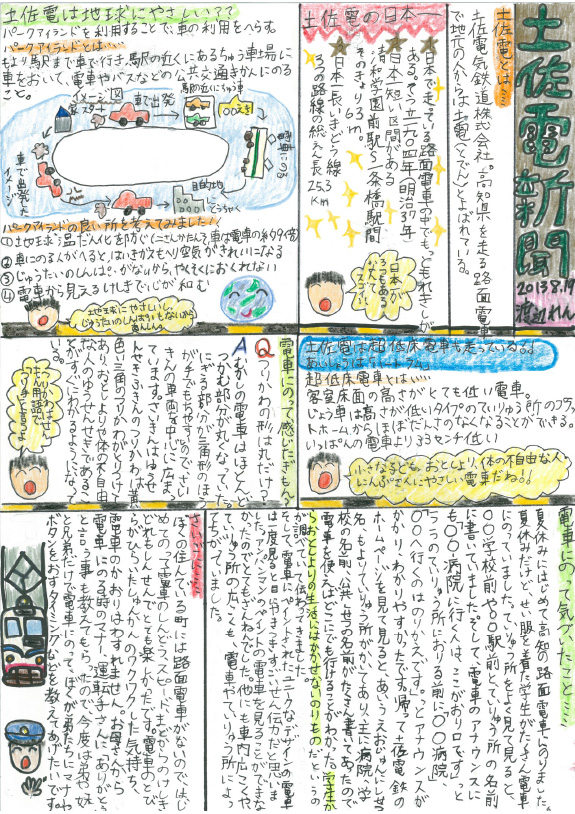 土佐電新聞
2013.8.19
渡辺れん
土佐電とは…
土佐電気鉄道株式会社。高知県を走る路面電車
で地元の人からは土電(とでん)とよばれている。
土佐電の日本一
★日本で走っている路面電車の中でもっともれきしが
ある。
★日本一短い区間がある
清和学園前駅〜一条橋駅間
そのきょり63m。
★日本一長いきどう線
3つの路線の総えん長25.3
km
日本一が
3つもあるなんて
スゴーイ
土佐電は地球にやさしいって
パークアイランドを利用することで、車の利用をへらす。
パークアイランドとは…
もより馬尺まで車で行き、駅の近くにあるちゅう車場に
車をおいて、電車やバスなどの公共交通きかんにのる
こと。
イメージ図
家スタート
車で出発
駅の近くにちゅう車
〇〇えき
目的地
とうちゃく
車で出発した
イメージ
パークアイランドの良い所を考えてみました!!
②車にのる人がへると、はいきガスもへり空気がきれいになる
③じゅうたいのしんぱいがないから、やくそくにおくれない
④電車から見えるけしきで心が和む
地球にやさしいし、
じゅうたいのしんぱいもないから
あんしん。
土佐電は超低床電車も走っているよ!
あいしょうは「ハートラム」
超低床電車とは…
客室床面の高さがとても低い電車。
じょう車は高さが低いタイプのていりゅう所のプラッ
トホームからほぼだんさのなくなることができる。
いっぱんの電車より33センチ低い
小さな子ども、おとしより、体の不自由な人、
にんぷさんにやさしい電車だね!!
電車にのって感じたぎもん
Q つりかわの形は丸だけ?
A むかしの電車はほとんど
つかむ部分が丸くなっていた。
にぎる部分が三角形のほ
うがもちやすいので、さい
きんの車両を中心に広ま
っています。さいきんはゆう
せんせきふきんのつりかわは、黄
色い三角のつりかわがとりつけて
あり、おとしよりや体の不自由
な人のゆうせんせきであるこ
とがすぐわかるようになって
いる。
電車にのって気づいたこと…
夏休みにはじめて高知の路面電車にのりました。
夏休みだけど、せい服を着た学生がたくさん電車
にのっていました。ていりゅう所をよく見て見ると、
〇〇学校前や〇〇駅前とていりゅう所の名前
に書いてました。そして、電車のアナウンスに
も「〇〇病院に行く人は、ここがおり口です。」っと
〇〇へ行くのはのりかえです。」っとアナウンスが
かかり、わかりやすかったです。帰って土佐電鉄の
ホームページを見て見ると、あいうえおじゅんにしせつ
名、もよりていりゅう所がかいてあり、主に病院、学
校の名前、公共しせつの名前がたくさん書いてあったので
電車を使えばどこにでも行けることがわかった。学生か
らおとしよりの生活にはかかせないのりものだというの
が調べていて伝わってきました。
そして、電車にペイントされたユニークなデザインの電車
は一度見ると目に焼きつき、すごいせん伝力だと思いま
した。アンパンマンのペイントの電車を見ることができな
かったのでとてもざんねんでした。他にも車内広こくや、
ていりゅう所の広こくも、電車やていりゅう所によっ
てちがっていました。
さいごに…
ぼくの住んでいる町には路面電車がないのではじ
めてのって電車のしんどう、スピード、まどからのけしき
どれもしんせんでとても楽しかったです。電車のとび
らがひらいたしゅんかんのワクワクした気持ち、
電車のかおりはわすれません。お母さんから
電車にのる時のマナー、運転手さんにありがとう
と言う事も教えてもらったので、今度は弟や妹
と兄弟だけで電車にのって、ぼくが弟たちにマナーや
ボタンをおすタイミングなどを教えてあげたいです。